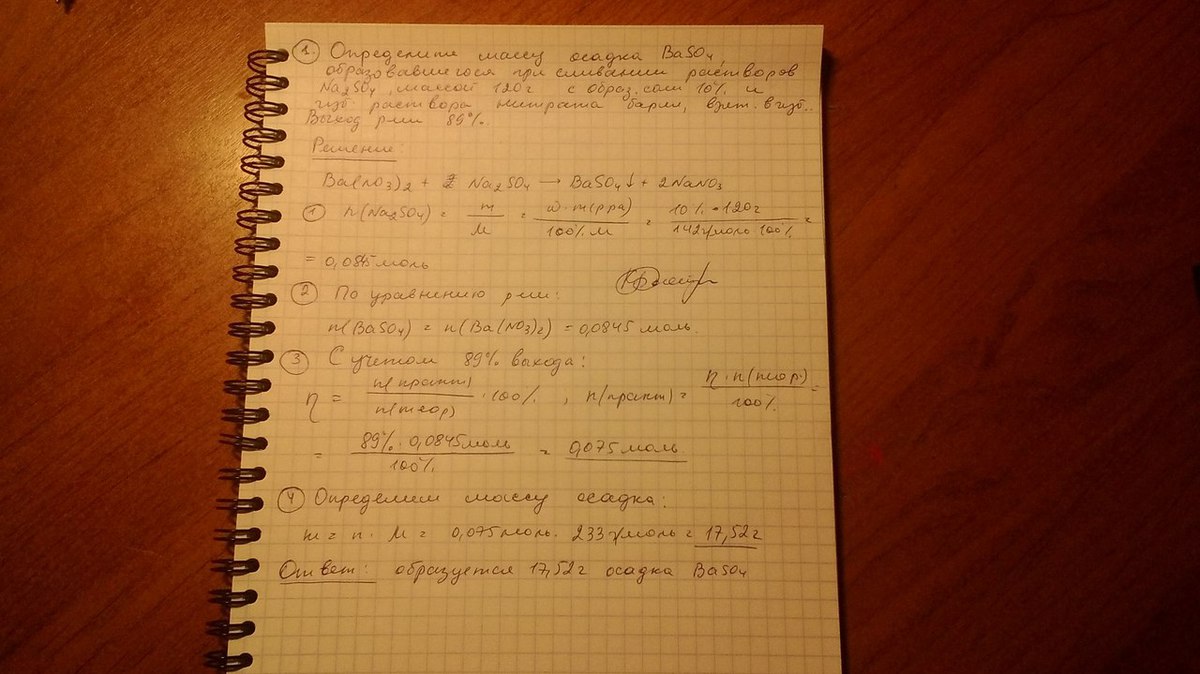 1. Определите массу осадка BaSO4,
образовавшегося при сливании растворов
Na2SO4, массой 120г с образ. соли 10% и
раствора нитрата бария, взят. в изб.
Выход р-ии 89%.
Решение
Ba(NO3)2 + Na2SO4 → BaSO4↓ + 2NaNO3
1 n(Na2SO4) = m/M = ω·m(р-ра)/100%·M = 10%·120г/142г/моль·100% =
= 0,0845 моль
2 По уравнению р-ии:
n(BaSO4) = n(Ba(NO3)2) = 0,0845 моль.
3 С учетом 89% выхода:
η = n(практ)/n(теор) · 100%, n(практ) = η·n(теор)/100% =
= 89%·0,0845 моль/100% = 0,075 моль
4 Определим массу осадка:
m = n · M = 0,075 моль · 233 г/моль = 17,52г
Ответ: образуется 17,52г осадка BaSO4